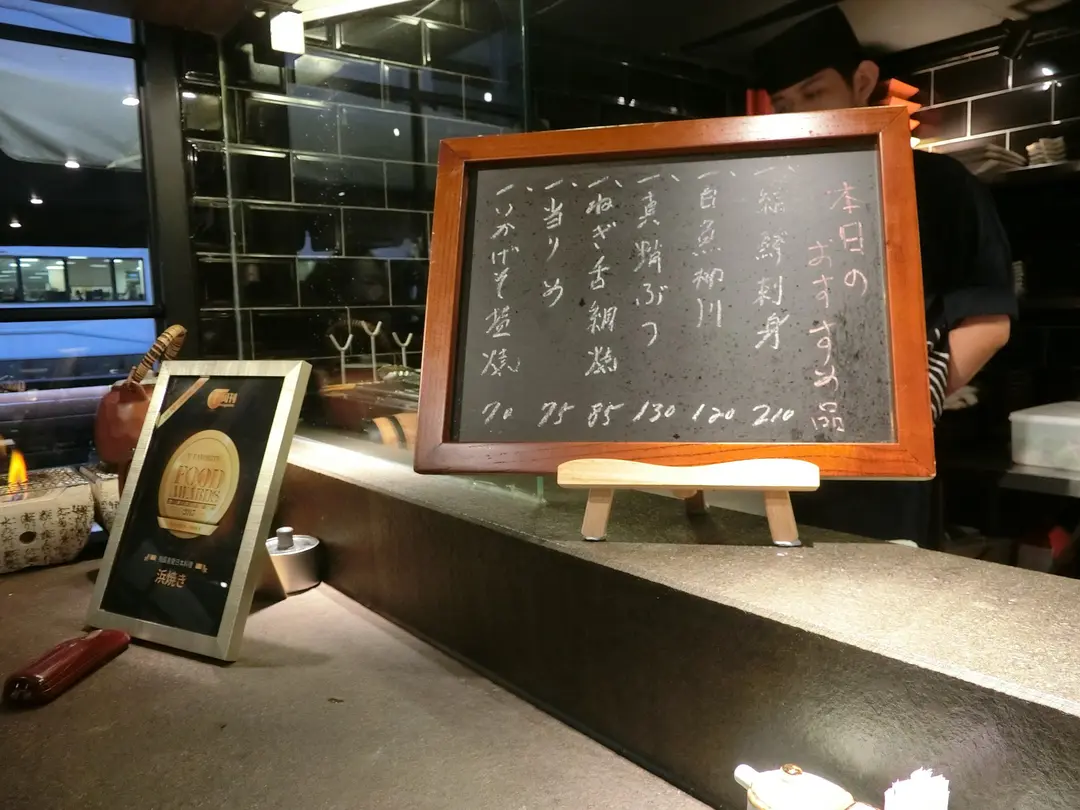 本日の
おすすめ品
一、縞鯵刺身 210
一、白魚柳川 120
一、真蛸ぶつ 130
一、ねぎ舌網焼 85
一、当りめ 75
一、いかげそ塩焼 70
周刊
FOOD
AWARDS
浜焼き